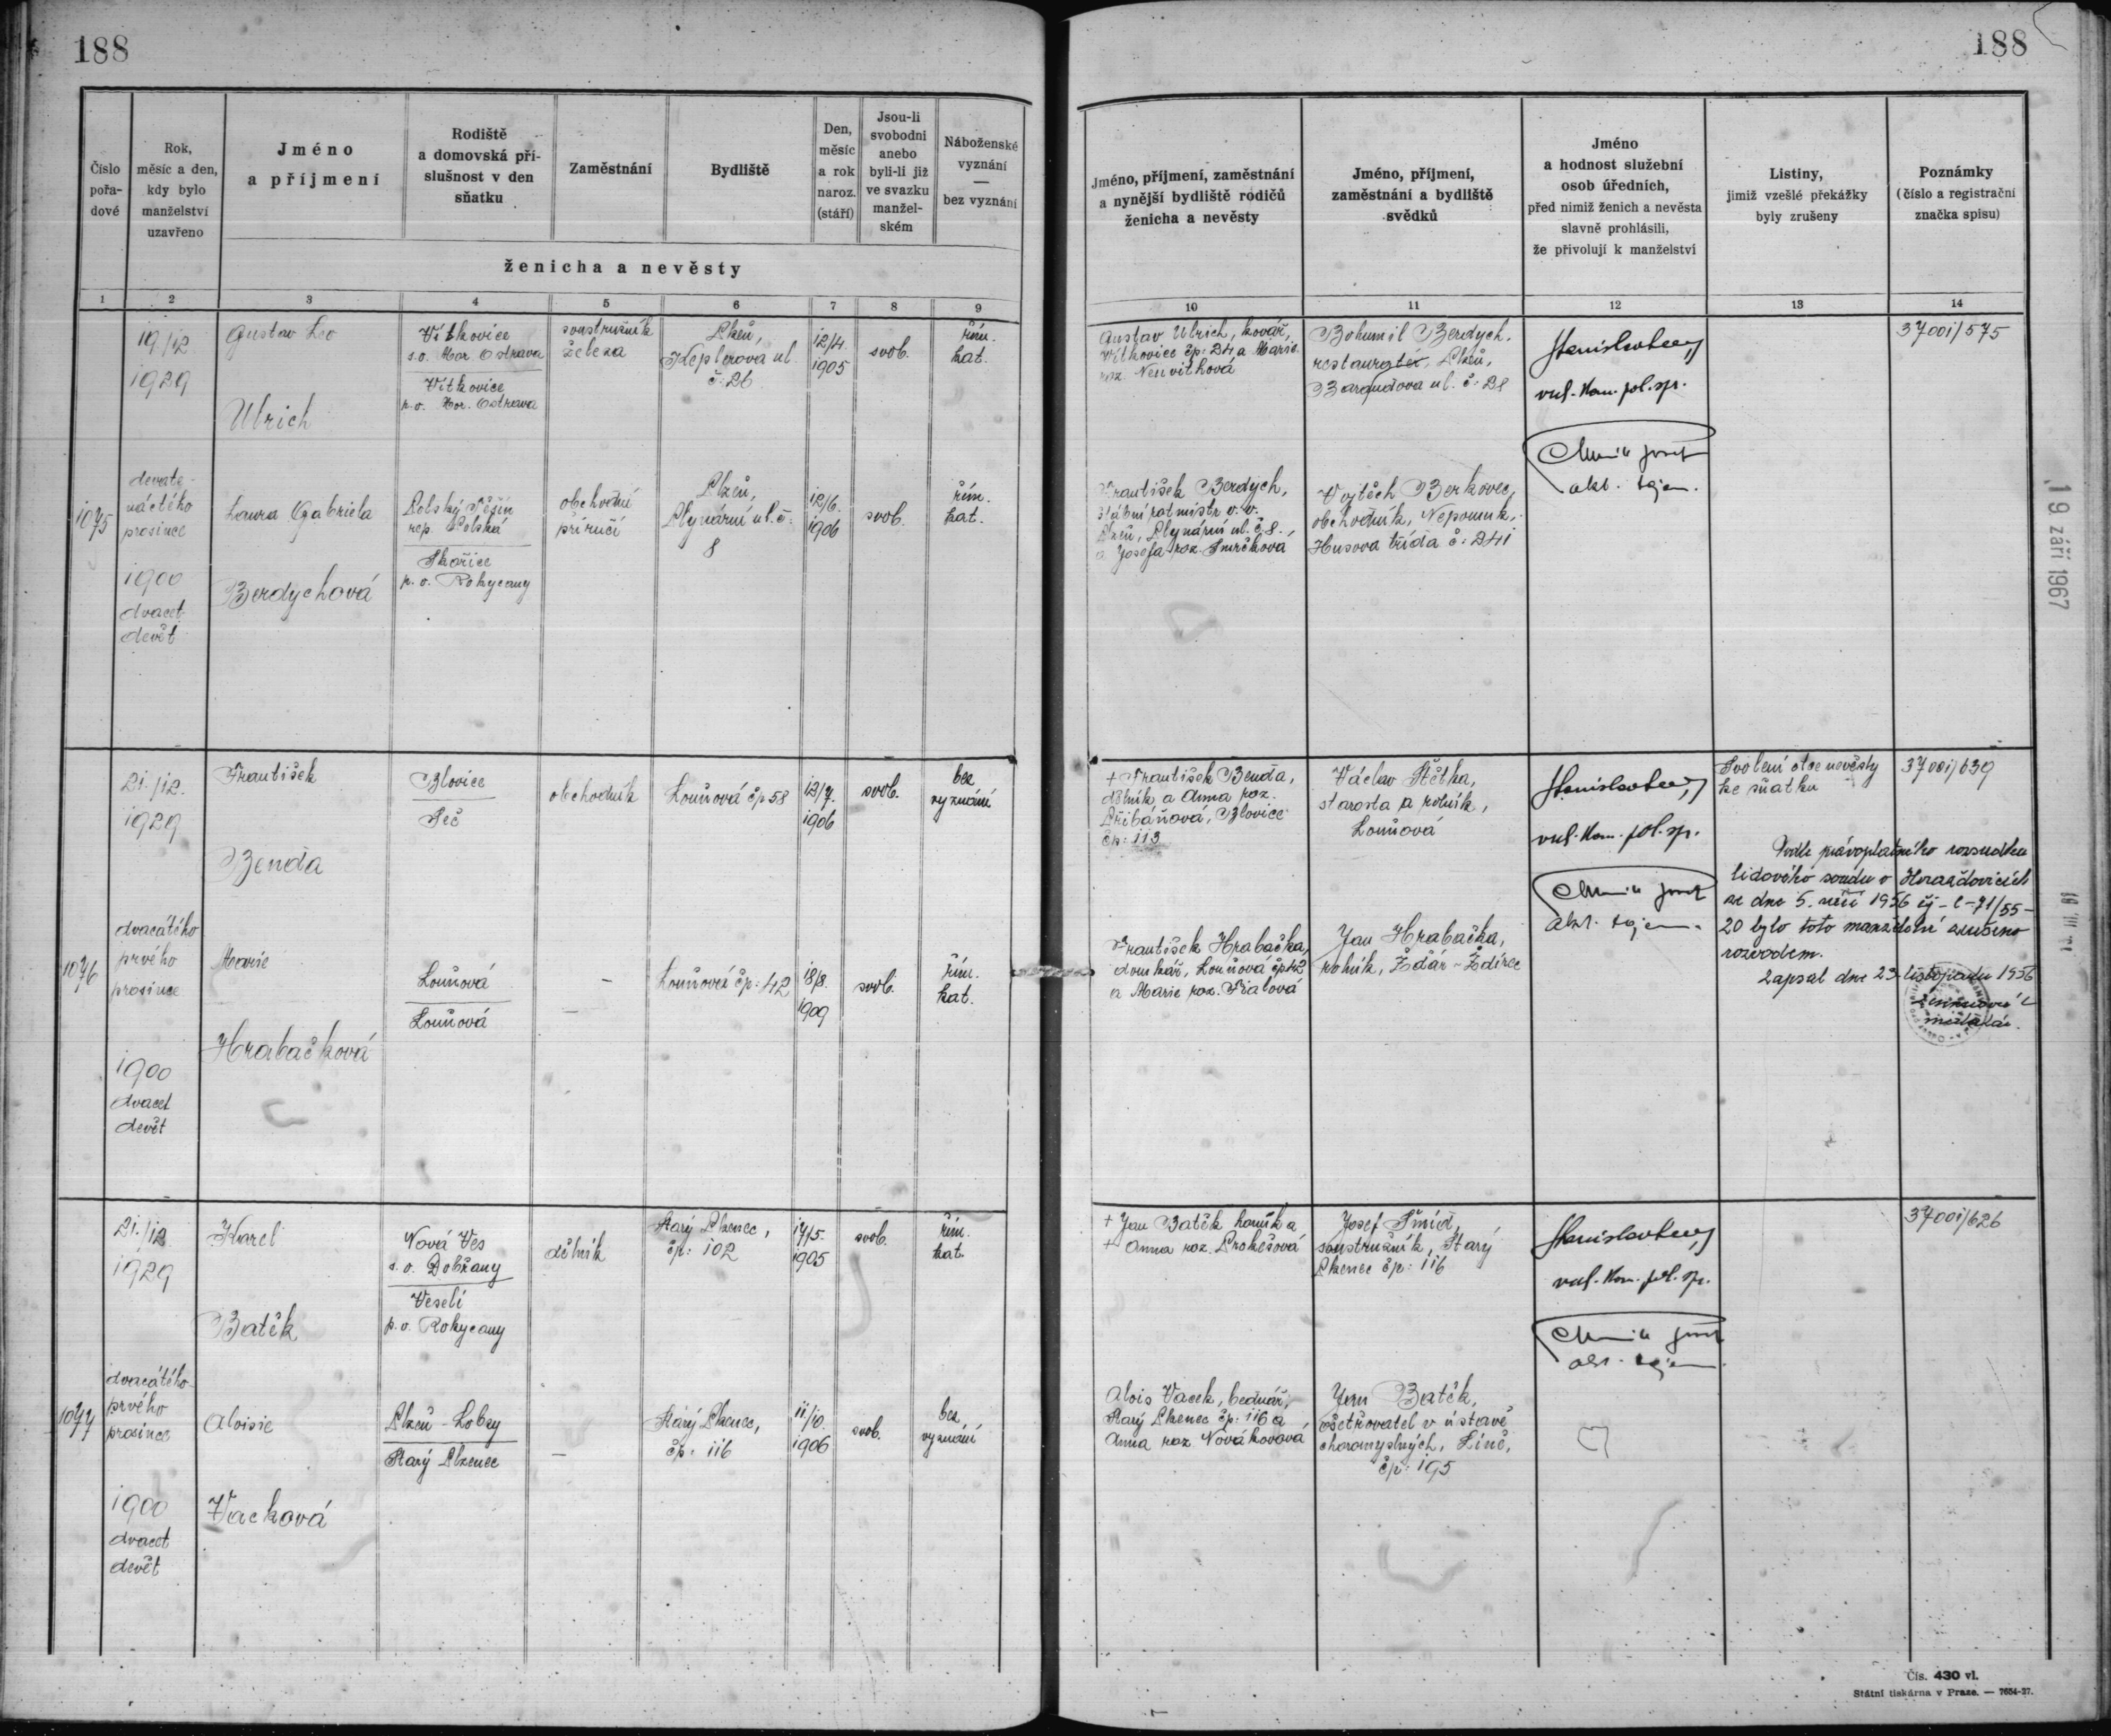 188
188
Číslo
pořa-
dové
Rok,
měsíc a den,
kdy bylo
manželství
uzavřeno
Jméno
a příjmení
Rodiště
a domovská pří-
slušnost v den
sňatku
Zaměstnání
Bydliště
Den,
měsíc
a rok
naroz.
(stáří)
Jsou-li
svobodni
anebo
byli-li již
ve svazku
manžel-
ském
Náboženské
vyznání
—
bez vyznání
ženicha a nevěsty
Jméno, příjmení, zaměstnání
a nynější bydliště rodičů
ženicha a nevěsty
Jméno, příjmení,
zaměstnání a bydliště
svědků
Jméno
a hodnost služební
osob úředních,
před nimiž ženich a nevěsta
slavně prohlásili,
že přivolují k manželství
Listiny,
jimiž vzešlé překážky
byly zrušeny
Poznámky
(číslo a registrační
značka spisu)
1 2 3 4 5 6 7 8 9
10 11 12 13 14
1075
19/12
1929
devate-
náctého
prosince
1900
dvacet
devět
Gustav Leo
Ulrich
Vítkovice
s.o. Mor. Ostrava
Vítkovice
p.o. Mor. Ostrava
soustružník
železa
Plzeň,
Keplerova ul.
č: 26
12/4.
1905
svob.
řím.
kat.
Laura Gabriela
Berdychová
Polský Těšín
rep. Polská
Skořice
p. o. Rokycany
obchodní
příručí
Plzeň,
Plynární ul. č:
8
12/6.
1906
svob.
řím.
kat.
Gustav Ulrich, kovář,
Vítkovice čp: 24 a Marie
roz. Neuvithová
František Berdych,
štábní rotmistr v. v.
Plzeň, Plynární ul. č. 8.,
a Josefa roz. Smrčková
Bohumil Berdych.
restauratér, Plzeň,
Barandova ul. č: 28
Vojtěch Berkovec,
obchodník, Nepomuk,
Husova třída č: 241
pol. sp.
Josef
37001/575
1076
21./12.
1929
dvacátého
prvého
prosince
1900
dvacet
devět
František
Benda
Blovice
Seč
obchodník
Louňová čp 58
12/7.
1906
svob.
bez
vyznání
Marie
Hrabačková
Louňová
Louňová
—
Louňová čp: 42
18/8.
1909
svob.
řím.
kat.
+ František Benda,
dělník a Anna roz.
Přibáňová, Blovice
čp: 113
František Hrabačka,
domkář, Louňová čp 42
a Marie roz. Fialová
Václav Štětka,
starosta a rolník,
Louňová
Jan Hrabačka,
rolník, Žďár - Ždírec
pol. sp.
Josef
Svolení otce nevěsty
ke sňatku
37001/639
Podle právoplatného rozsudku
lidového soudu v Horažďovicích
ze dne 5. září 1956 čj - C-71/55-
20 bylo toto manželství zrušeno
rozvodem.
Zapsal dne 23. listopadu 1956
matrikář.
1077
21./12.
1929
dvacátého
prvého
prosince
1900
dvacet
devět
Karel
Batěk
Nová Ves
s. o. Dobřany
Veselí
p.o. Rokycany
dělník
Starý Plzenec,
čp: 102
17/5.
1905
svob.
řím.
kat.
Aloisie
Vacková
Plzeň - Lobzy
Starý Plzenec
—
Starý Plzenec,
čp: 116
11/10.
1906
svob.
bez
vyznání
+ Jan Batěk horník a
+ Anna roz. Prokešová
Alois Vacek, bednář,
Starý Plzenec čp: 116 a
Anna roz. Nováková
Josef Šmíd,
soustružník, Starý
Plzenec čp: 116
Jan Batěk,
ošetřovatel v ústavě
choromyslných, Líně,
čp: 195
pol. sp.
37001/626
19 září 1967
Čís. 430 vl.
Státní tiskárna v Praze. — 7654-27.